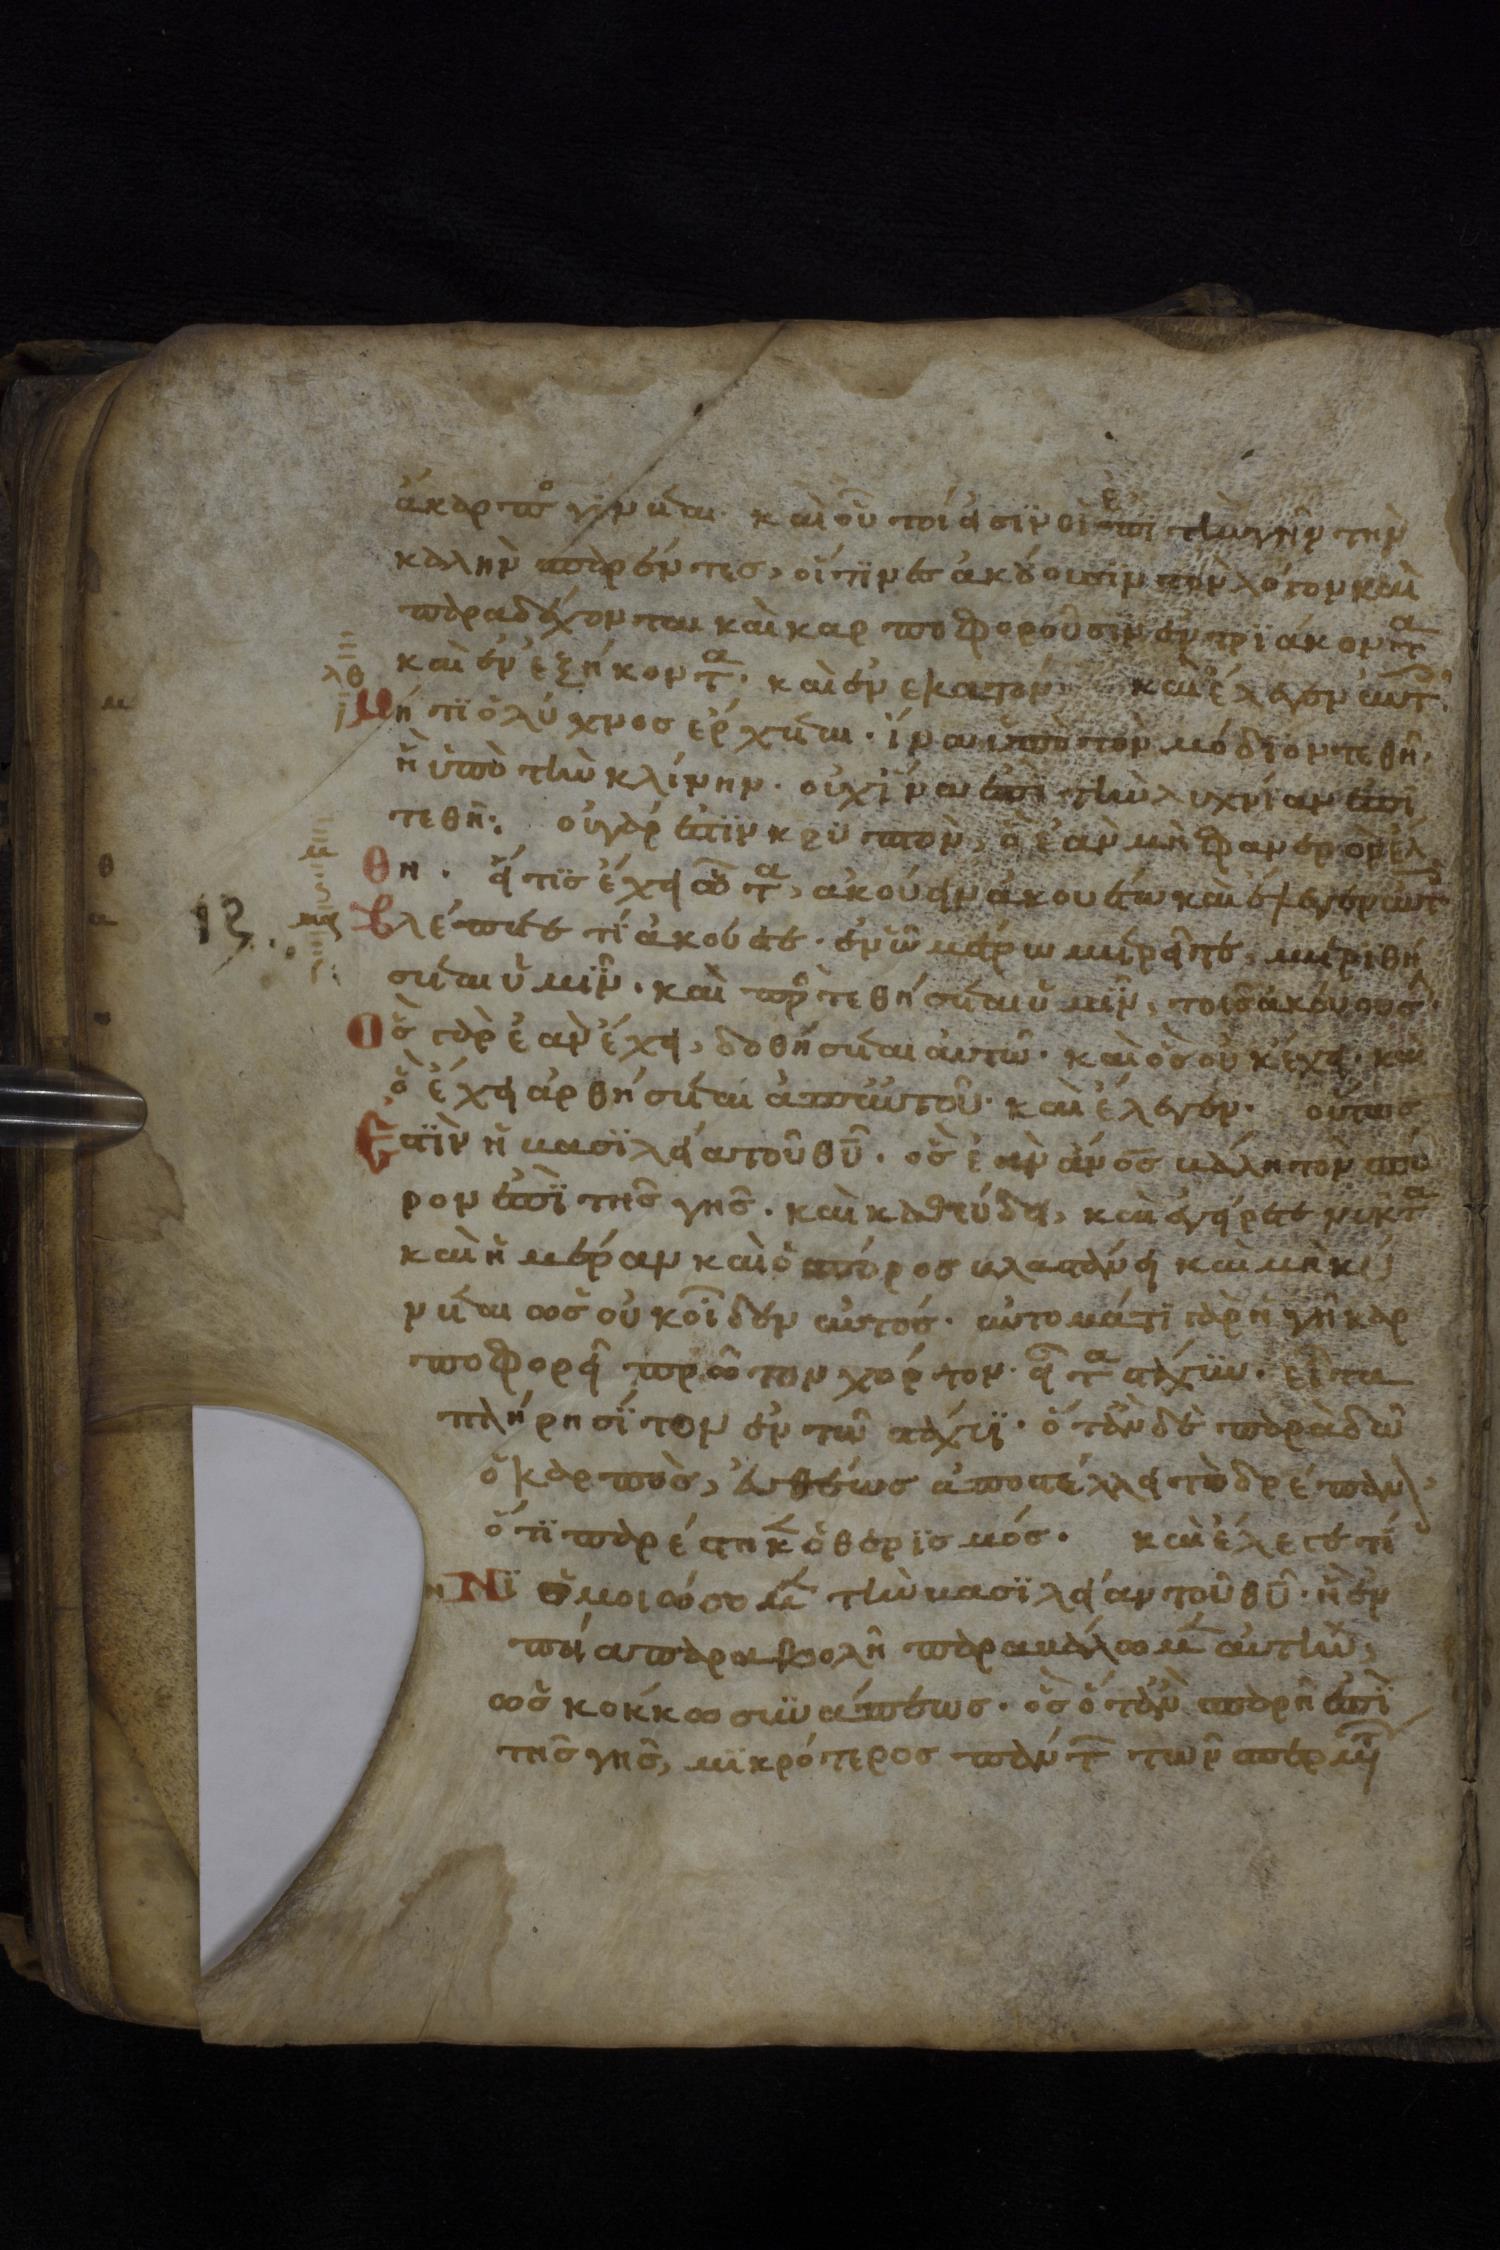 ἄκαρπο γίνεται· καὶ οὗτοί εἰσιν οἱ ἐπι τὴν γῆν τὴν
καλὴν σπαρέντες, οἵτινες ἀκούουσιν τὸν λόγον καὶ
παραδέχονται καὶ καρποφοροῦσιν ἐν τριάκοντα
καὶ ἐν ἑξήκοντα· καὶ ἐν εκατόν· καὶ ἔλεγεν αὐτ
λθ Μήτι ὁ λύχνος ἔρχεται· ἵνα ὑπὸ τὸν μόδιον τεθῆ,
ἢ ὑπὸ τὴν κλίνην· οὐχ ἵνα ἐπὶ τὴν λυχνίαν ἐπι
τεθῆ· οὐ γάρ ἐστιν κρυπτὸν, ὃ ἐὰν μὴ φανερ
Θη· εἴ τις ἔχει ὦτα, ακούειν ἀκουέτω καὶ ἔλεγεν αὐτ
Βλέπετε τί ἀκούετε· ἐν ὧ μέτρω μετρεῖτε, μετρηθή
σεται ὑμῖν· καὶ προστεθήσεται ὑμῖν, τοῖς ἀκούουσ
Ὃς γὰρ ἐὰν ἔχει, δοθήσεται αὐτῶ· καὶ ὃς οὐκ ἔχει· καὶ
ὃ ἔχει ἀρθήσεται ἀπ αὐτοῦ· καὶ ἔλεγεν· οὕτως
Ἐστὶν ἡ βασιλεία τοῦ θυ· ὡς ἐὰν ἄνος βάλη τὸν σπό
ρον ἐπὶ τῆς γῆς· καὶ καθεύδει, καὶ ἐγείρεται νύκτα
καὶ ἡμέραν καὶ ὁ σπόρος βλαστάνει καὶ μηκύ
νεται ὡς οὐκ οἶδεν αὐτός· αὐτομάτι γὰρ ἡ γῆ καρ
ποφορεῖ πρῶτον χόρτον· εἶτα στάχυν· εἶτα
πλήρη σίτον ἐν τῶ στάχυϊ· ὅταν δὲ παραδῶ
ὁ καρπὸς, εὐθέως ἀποστέλλει τὸ δρέπαν
ὅτι παρέστηκεν ὁ θερισμός· καὶ ἔλεγε τί
Νι ὁμοιώσομεν τὴν βασιλείαν τοῦ θυ· ἢ ἐν
ποία παραβολῆ παραβάλωμεν αὐτὴν,
ὡς κόκκω σινάπεως· ὃς ὅταν σπαρῆ ἐπὶ
τῆς γῆς, μικρότερος πάντ τῶν σπερμ